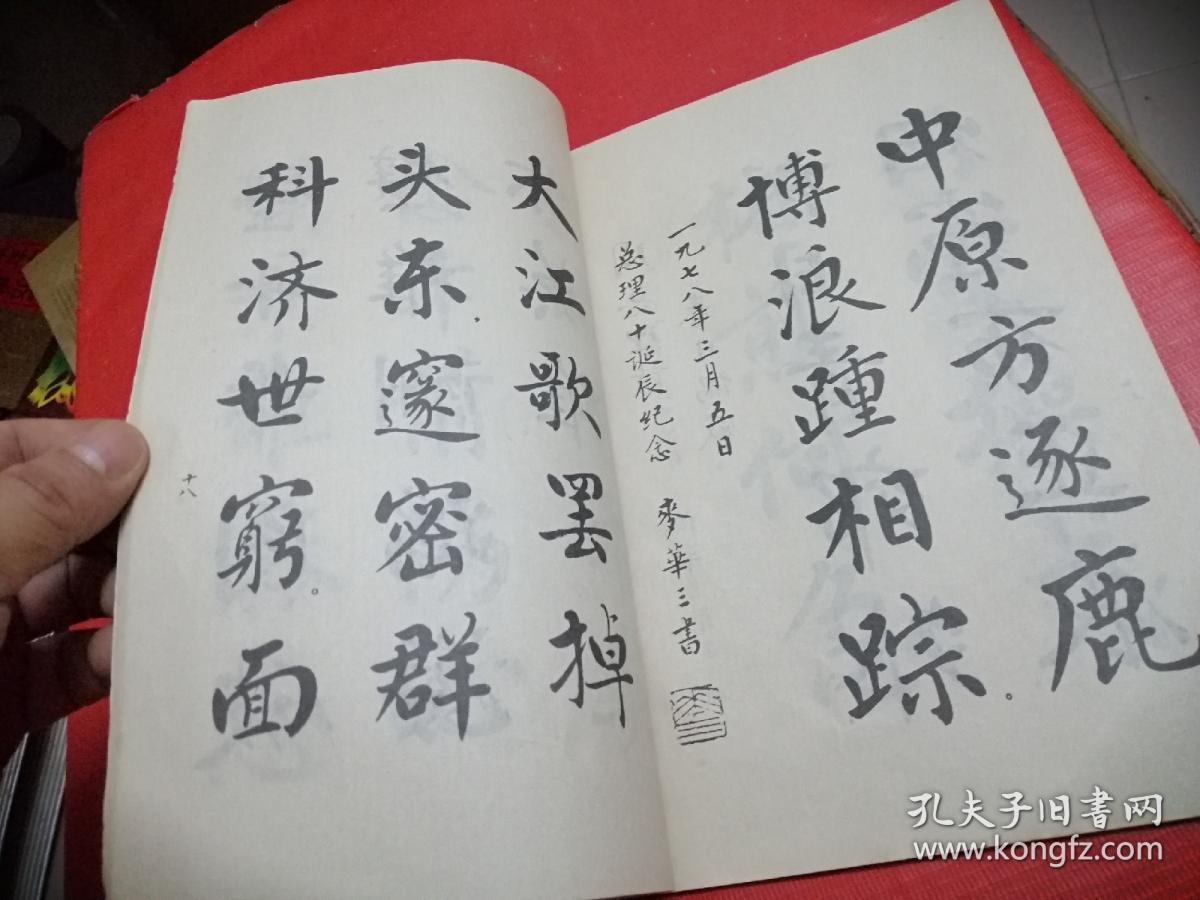 中原方逐鹿
博浪踵相踪。
一九七八年三月五日
总理八十诞辰纪念 麥華三書
大江歌罢掉
头东，邃密群
科济世窮。面
十八
孔夫子旧書网
www.kongfz.com